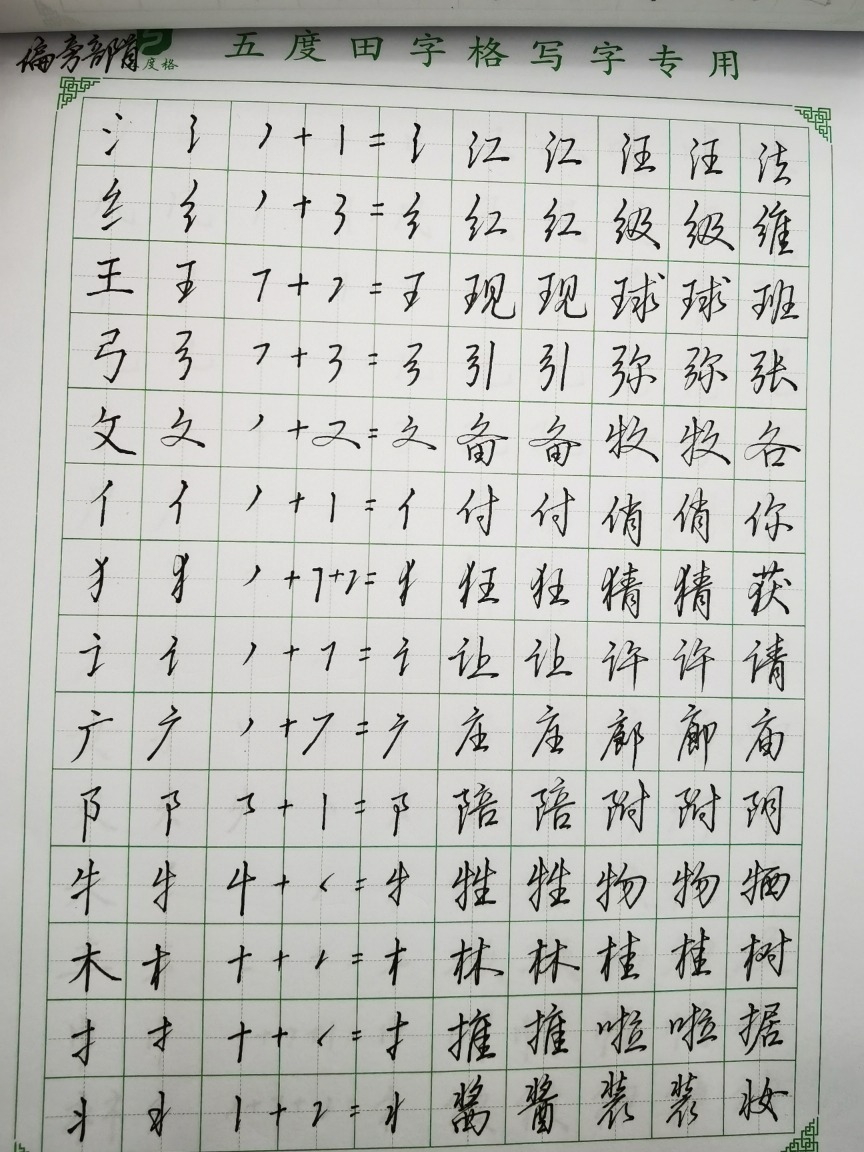 偏旁部首 度格 五度田字格写字专用
氵 氵 丿 + 丨 = 氵 江 江 汪 汪 法
纟 纟 丿 + 3 = 纟 红 红 级 级 维
王 王 7 + 2 = 王 现 现 球 球 班
弓 弓 7 + 3 = 弓 引 引 弥 弥 张
攵 夂 丿 + 又 = 夂 备 备 牧 牧 各
亻 亻 丿 + 丨 = 亻 付 付 俏 俏 你
犭 犭 丿 + 7 + 2 = 犭 狂 狂 猜 猜 获
讠 讠 丿 + 7 = 讠 让 让 许 许 请
广 广 丿 + 7 = 广 庄 庄 廊 廊 庙
阝 阝 3 + 1 = 阝 陪 陪 附 附 阴
牛 牜 + = 牜 牲 牲 物 物 牺
木 木 十 + = 木 林 林 桂 桂 树
扌 扌 十 + = 扌 推 推 啦 啦 据
丬 丬 1 + 2 = 丬 酱 装 装 妆